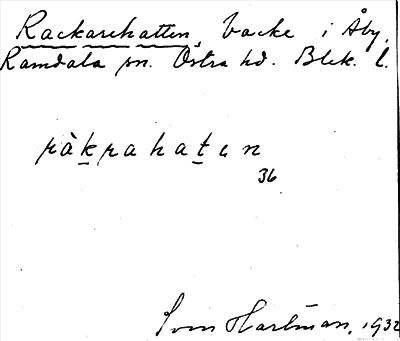 Rackarehatten, backe i Åby,
Ramdala sn. Östra hd. Blek. l.
ràkrahaten
36
Sven Hartman, 1932